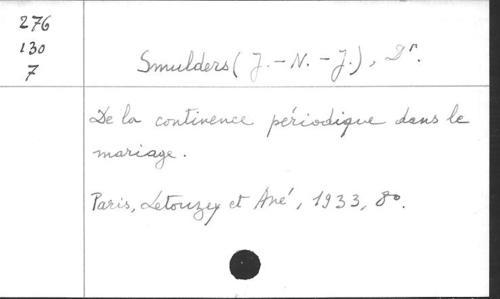 276
130
7
Smulders (J.-N.-J.), Dr.
De la continence périodique dans le
mariage.
Paris, Letouzey et Ané, 1933, 8o.